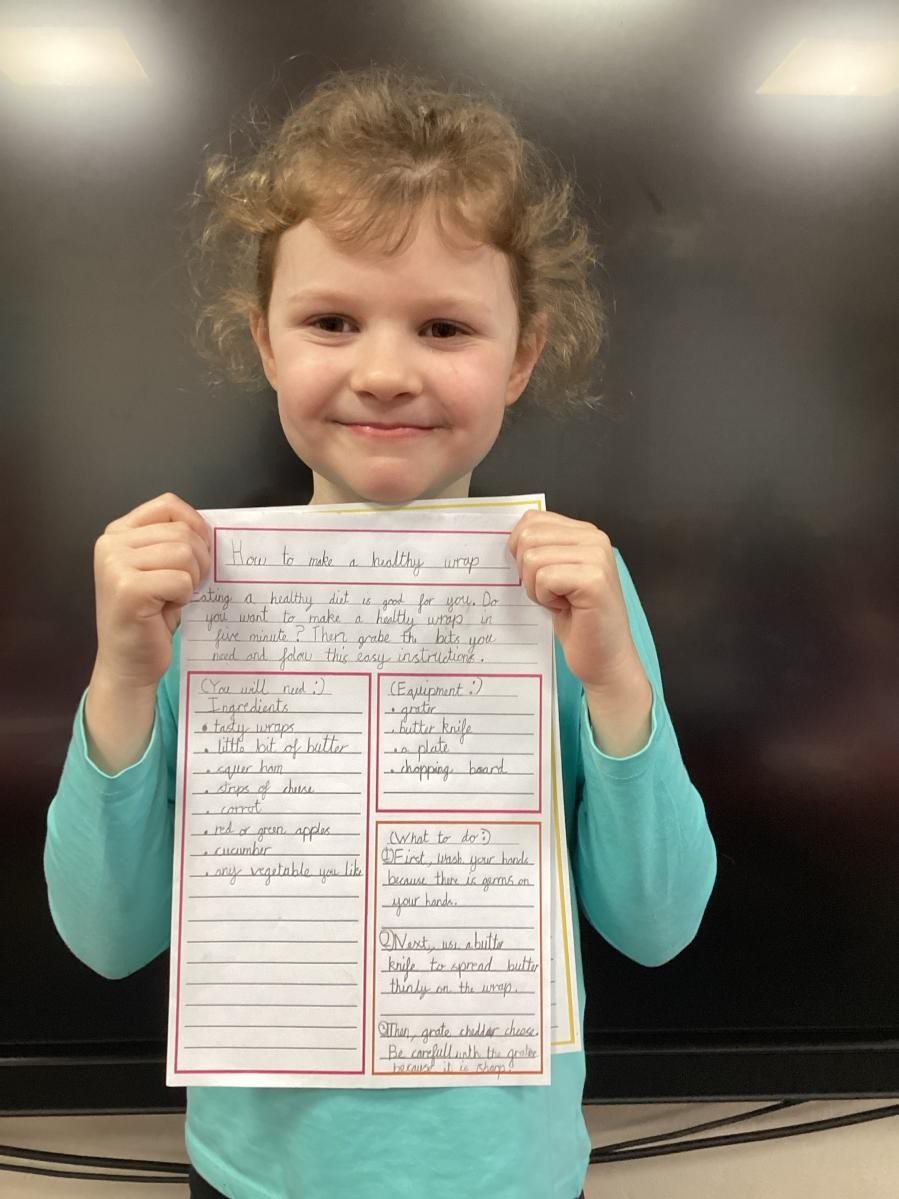 How to make a healthy wrap
Eating a healthy diet is good for you. Do
you want to make a healtly wrap in
five minute? Then grabe the bits you
need and folow this easy instructions.
(You will need:)
Ingredients
• tasty wraps
• little bit of butter
• squer ham
• strips of cheese
• carrot
• red or green apples
• cucumber
• any vegetable you like
(Equipment:)
• grater
• butter knife
• a plate
• chopping board
(What to do:)
① First, wash your hands
because there is germs on
your hands.
② Next, use a butter
knife to spread butter
thinly on the wrap.
③ Then, grate cheddar cheese.
Be carefull with the grater
because it is sharp.